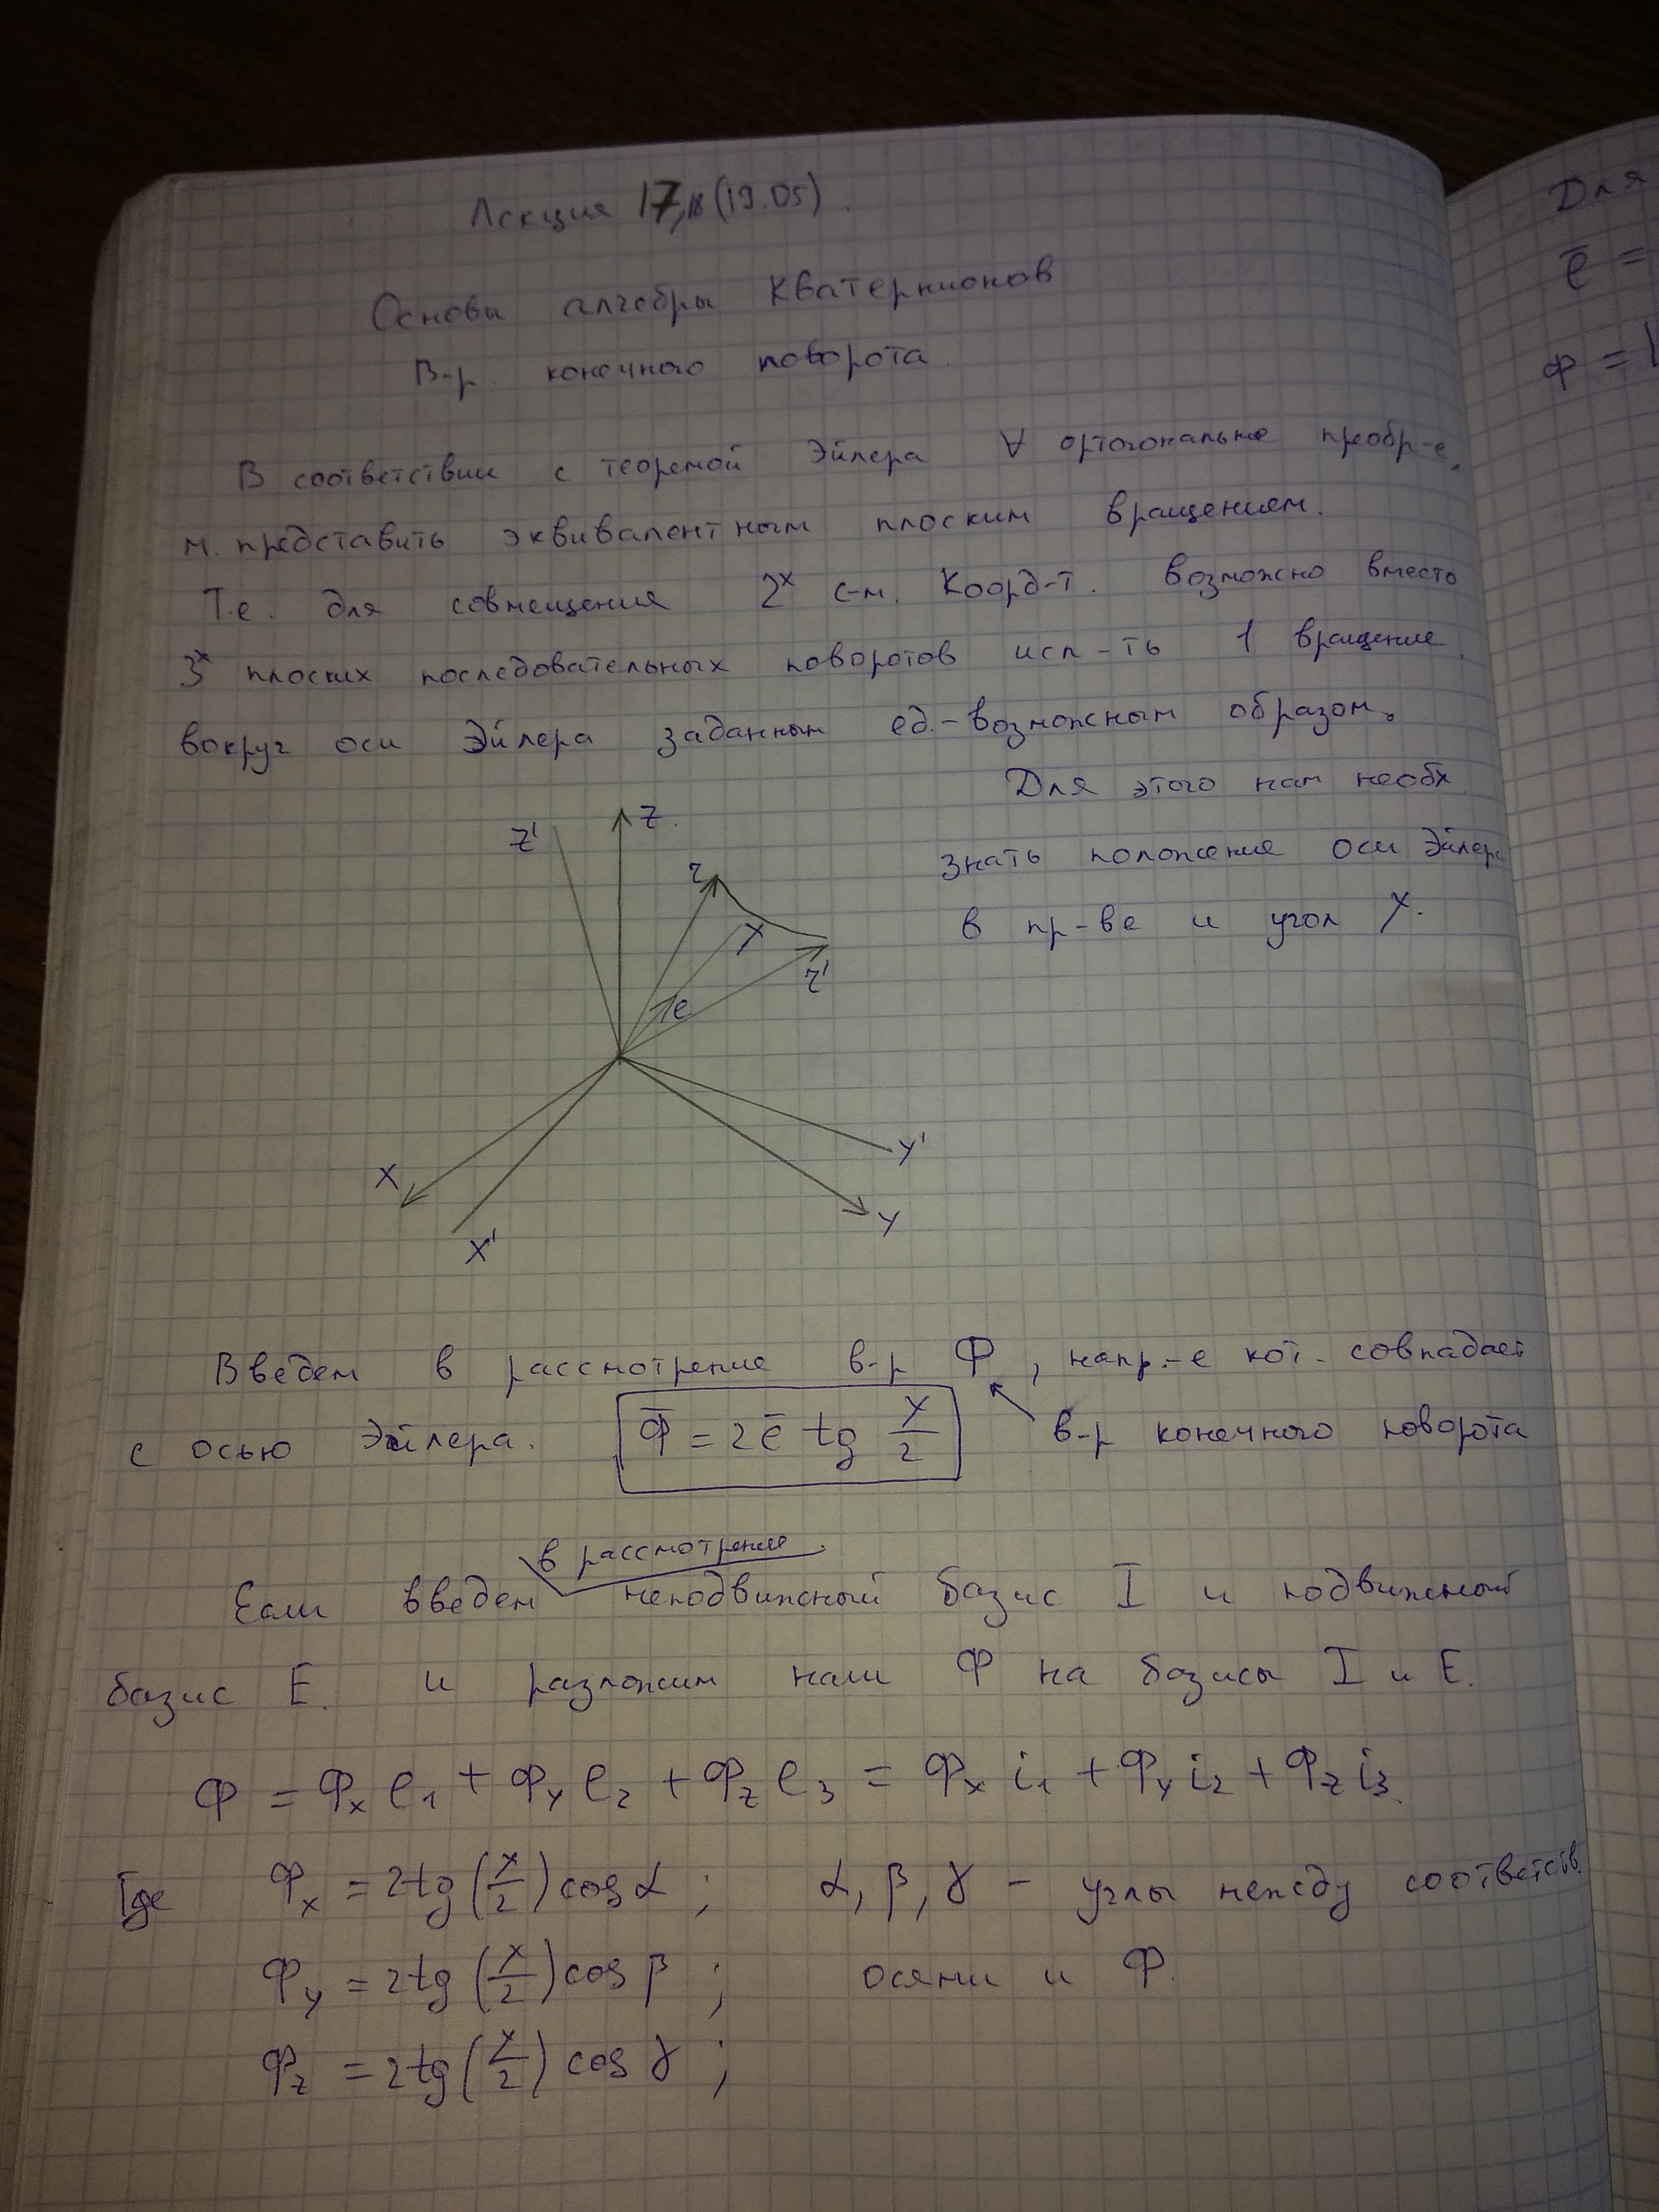 Лекция 17,18 (19.05).
Основы алгебры кватернионов
В-р. конечного поворота.
В соответствии с теоремой Эйлера ∀ ортогональное преобр-е.
м. представить эквивалентным плоским вращением.
Т.е. для совмещения 2х с-м. коорд-т. возможно вместо
3х плоских последовательных поворотов исп-ть 1 вращение
вокруг оси Эйлера заданным ед.-возможным образом.
Для этого нам необх.
знать положение оси Эйлера
в пр-ве и угол χ.
Z'
Z
r
χ
r'
e
X
X'
Y'
Y
Введем в рассмотрение в-р Ф, напр.-е кот. совпадает
с осью Эйлера. Ф̄ = 2ē tg χ/2 в-р конечного поворота
в рассмотрение
Если введем неподвижный базис I и подвижный
базис E. и разложим наш Ф на базисы I и E.
Ф = Фx e1 + Фy e2 + Фz e3 = Фx i1 + Фy i2 + Фz i3.
Где Фx = 2tg(χ/2)cos α; α, β, γ - углы между соответств.
Фy = 2tg(χ/2)cos β; осями и Ф.
Фz = 2tg(χ/2)cos γ;
Для
ē =
Ф =